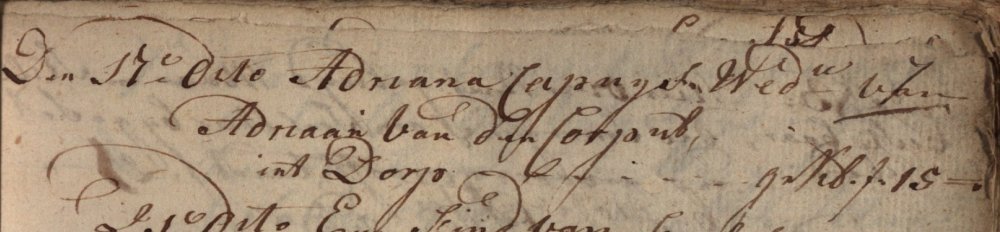 151
Den 17e dito Adriana Capuijs Wedu van
Adriaan van den Corput,
int Dorp - - - - - f. 15 =
21e dito Een Kind van